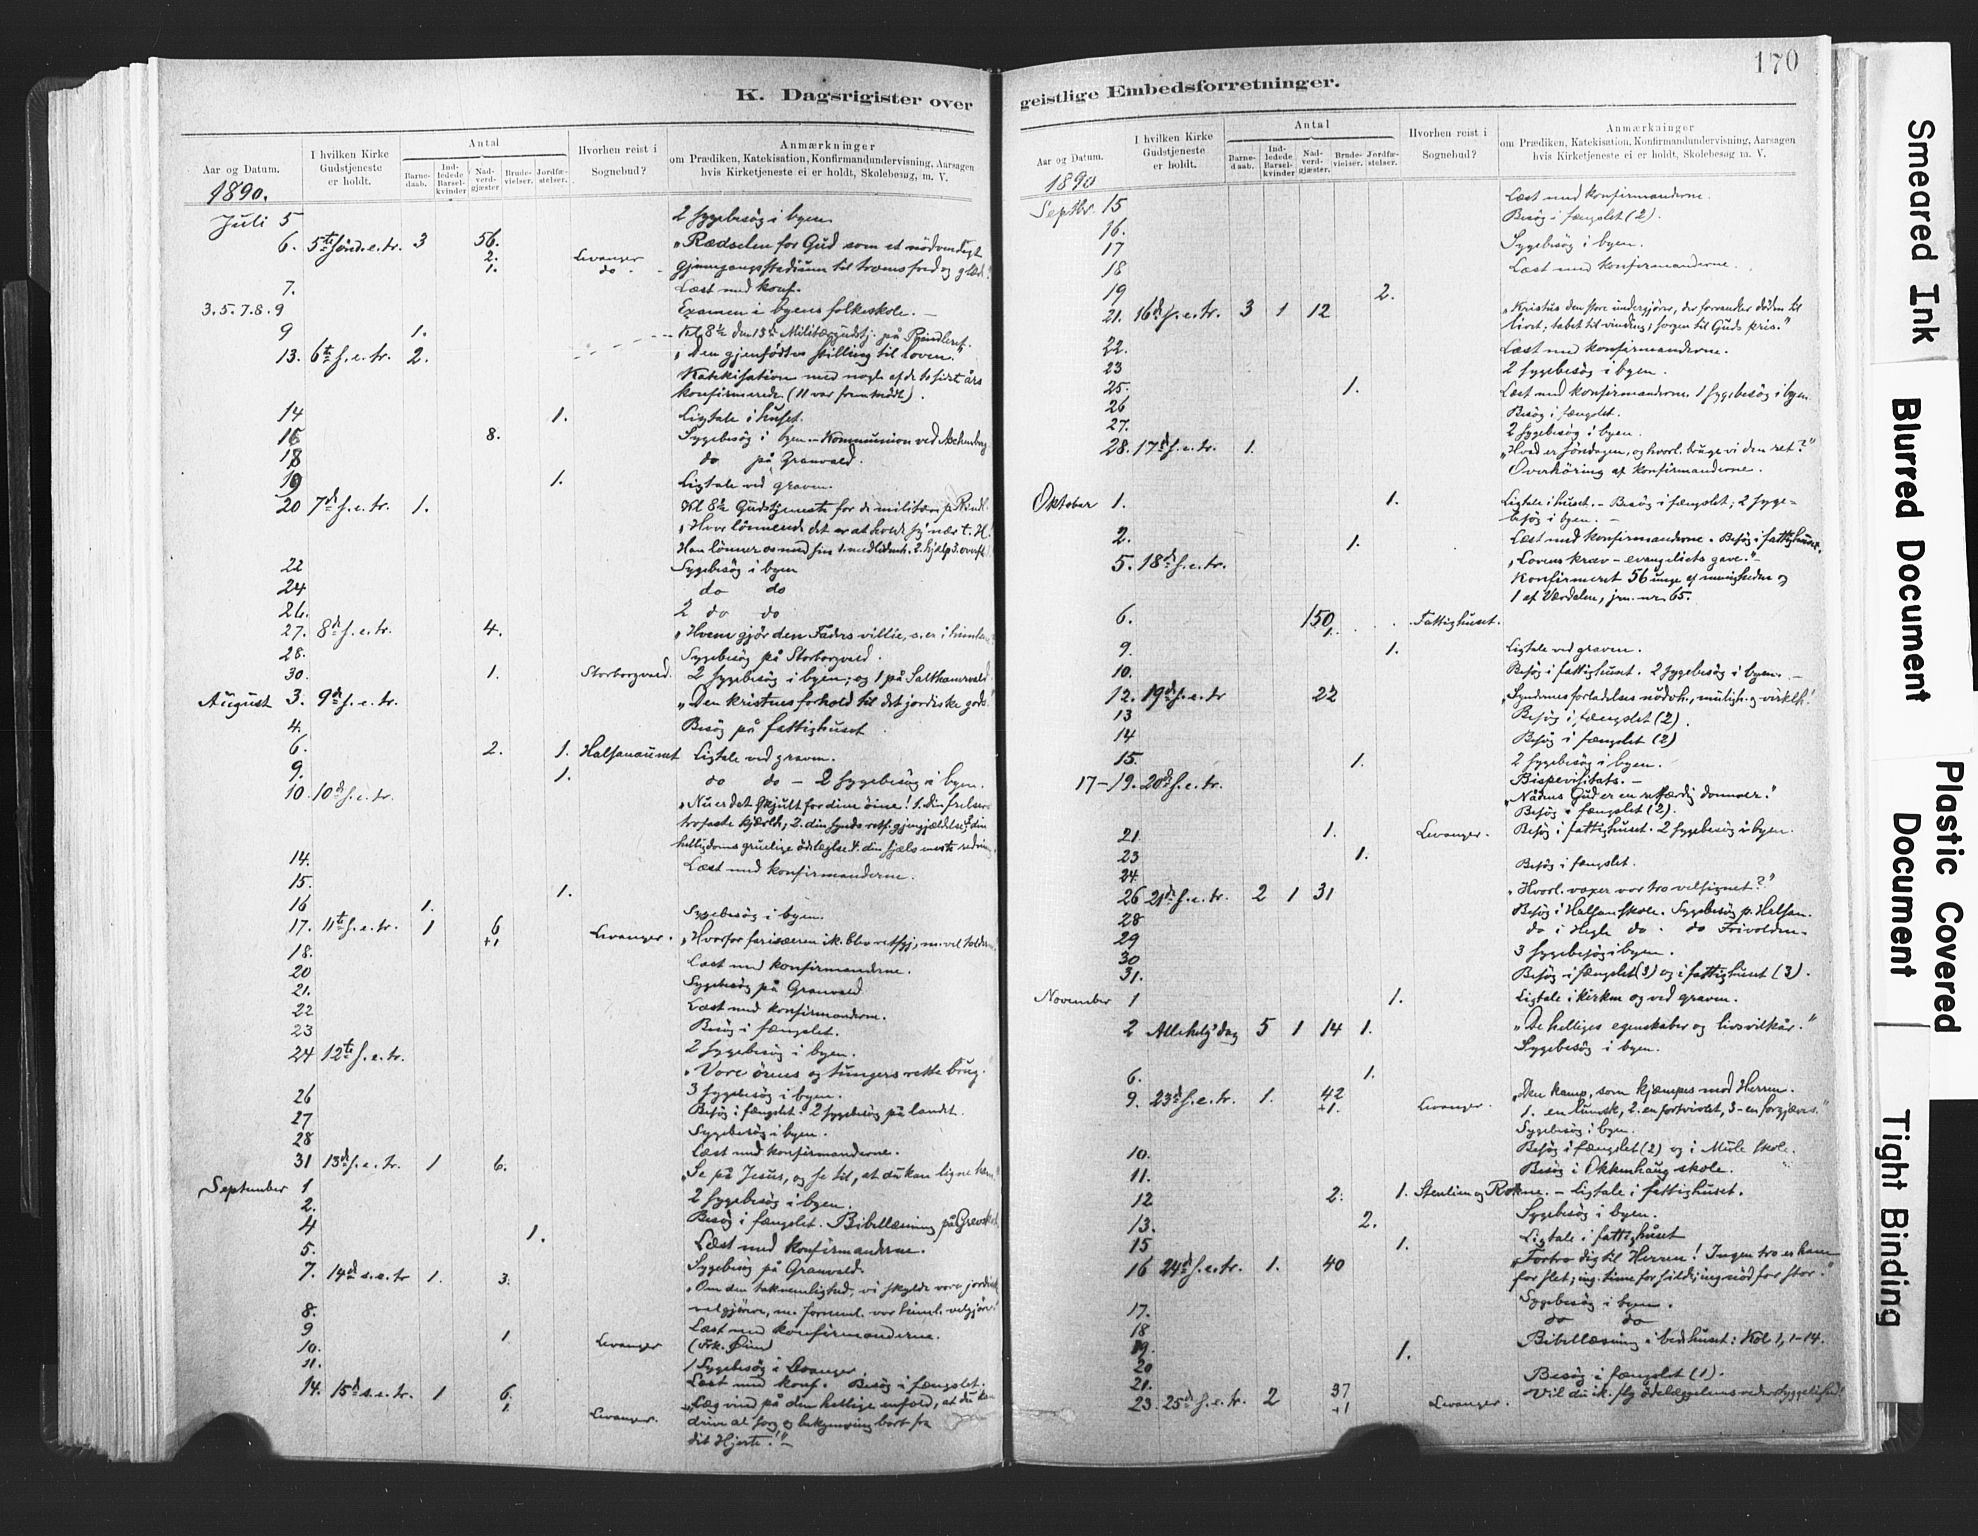 170
K. Dagsrigister over
geistlige Embedsforretninger.
Aar og Datum.
I hvilken Kirke Gudstjeneste er holdt.
Antal
Barne-daab.
Ind-ledede Barsel-kvinder
Nad-verd-gjæster
Brude-vielser.
Jordfæ-stelser.
Hvorhen reist i Sognebud?
Anmærkninger
om Prædiken, Katekisation, Konfirmandundervisning, Aarsagen
hvis Kirketjeneste ei er holdt, Skolebesøg, m. V.
1890.
Juli 5 2 sygebesög i byen
6. 5te sönd. e. tr. 3 56. „Rædselen for Gud som et nödvendigt
2. Levanger
1. do
7. Læst med konf.
3.5.7.8.9 Examen i byens folkeskole.
9 1. Kl 8½ den 13de Militærgudstj. på Rindleret.
13. 6te s. e. tr. 2. „Den gjenfödtes stilling til loven."
Katekisation med nogle af de to sidst års
konfirmerede (11 var fremmödt).
14 1. Ligtale i huset.
16 8. Sygebesög i byen. – Kommunion ved
18 do på Granvald.
19 1. Ligtale ved graven.
20 7de s. e. tr. 1. Kl 8½ Gudstjeneste for de militære på Rindl.
22 Sygebesög i byen
24 do do
26. 2 do do
27. 8de s. e. tr. 4. „Hvem gjör den Faders villie, s. er i himlen
28. Sygebesög på Storborgvald.
30. 1. Storborgvald. 2 sygebesög i byen; og 1 på Salthamrvald
August 3. 9de s. e. tr. „Den kristnes forhold til det jordiske gods."
4. Besög på fattighuset
6. 2. 1. Halsanaunet Ligtale ved graven.
9. 1. do do – 2 sygebesög i byen.
10. 10de s. e. tr. „Nu er det skjult for dine öine! 1. Din frelsers
trofaste kjærlh; 2. din synds retf. gjengjældelse; 3. din
helligdoms gruelige ödelæglse 4. din sjæls eneste redning
14. Læst med konfirmanderne.
15. 1.
16 1. Sygebesög i byen.
17. 11te s. e. tr. 1 6 „Hvorfor farisæeren ik. blev retfgj, m. vel tolderen
+1 Levanger.
18. Læst med konfirmanderne.
20 Sygebesög på Granvald
21. Læst med konfirmanderne.
22 Besög i fængslet.
23 2 sygebesög i byen.
24 12te s. e. tr. „Vore örens og tungers rette brug.
26 3 sygebesög i byen.
27 Besög i fængslet. 2 sygebesög på landet.
28 Sygebesög i byen.
Læst med konfirmanderne.
31 13de s. e. tr. 1 6. „Se på Jesus, og se til, at du kan ligne ham."
September 1 2 sygebesög i byen.
2. Besög i fængslet. Bibellæsning på
4 1. Læst med konfirmanderne.
5. Sygebesög på Granvald.
7. 14de s. e. tr 1. 3. „Om den taknemlighed, vi skylde vore jordiske
velgjörere, m. foreml. vor himl. velgjörer.
8. Læst med konfirmanderne.
9 1 Levanger (Frk. )
10. 1 Sygebesög i Levanger
11. Læst med konf. Besög i fængslet.
14. 15de s. e. tr. 1 6. „Læg vind på den hellige enfold, at du kan
1 Levanger. drive al sorg og bekymring bort fra
dit Hjerte!" –
Aar og Datum.
I hvilken Kirke Gudstjeneste er holdt.
Antal
Barne-daab.
Ind-ledede Barsel-kvinder
Nad-verd-gjæster.
Brude-vielser.
Jordfæ-stelser.
Hvorhen reist i Sognebud?
Anmærkninger
om Prædiken, Katekisation, Konfirmandundervisning, Aarsagen
hvis Kirketjeneste ei er holdt, Skolebesøg m. V.
1890
Septbr. 15 Læst med konfirmanderne.
16. Besög i fængslet (2).
17 Sygebesög i byen.
18 Læst med konfirmanderne.
19 2.
21. 16de s. e. tr. 3 1 12 „Kristus den store undergjörer, der forvandler döden til
livet; tabet til vinding; sorgen til Guds pris."
22. Læst med konfirmanderne.
23 2 sygebesög i byen.
25. 1. Læst med konfirmanderne. 1 sygebesög i byen.
26 Besög i fængslet.
27. 2 sygebesög i byen.
28. 17de s. e. tr. 1. „Hvad er söndagen, og hvorl. bruge vi den ret?"
Overhöring af konfirmanderne.
Oktober 1. 1. Ligtale i huset. – Besög i fængslet; 2 syge-
besög i byen. –
2. 1. Læst med konfirmanderne. Besög i fattighuset.
5. 18de s. e. tr. „Lovens krav – evangeliets gave." –
Konfirmeret 56 unge af menigheden og
1 af Værdalen, jrn. nr. 65.
6. 150
1. Fattighuset.
9. 1. Ligtale ved graven.
10. Besög i fattighuset. 2 sygebesög i byen. –
12. 19de s. e. tr 22 „Syndernes forladelses nödvh., mulig. og virklh."
13 Besög i fængslet (2).
14 Besög i fængslet (2)
15. 1. 2 sygebesög i byen.
17–19. 20de s. e. tr. Bispevisitats. –
„Nådens Gud er en retfærdig dommer."
Besög i fængslet (2).
21. 1. Levanger. Besög i fattighuset. 2 sygebesög i byen.
23 1.
24 Besög i fængslet.
26 21de s. e. tr. 2 1 31 „Hvorl. voxer vor tro velsignet?"
28 Besög i Halsan skole. Sygebesög p. Halsan.
29 do i Hegle do. do Frivolden.
30 3 sygebesög i byen.
31. Besög i fængslet (3) og i fattighuset (3).
November 1 1. Ligtale i kirken og ved graven.
2 Allehelg's dag 5 1 14 1. „De helliges egenskaber og livsvilkår."
Sygebesög i byen.
6. 1.
9. 23de s. e. tr. 1. 42 „Den kamp, som kjæmpes mod Herren.
+1. Levanger. 1. en lumsk, 2. en fortvivlet, 3. en forgjæves."
Sygebesög i byen.
10. Besög i fængslet (2) og i Mule skole.
11. Besög i Okkenhaug skole.
12 2. 1. Stenlien og Rokne. – Ligtale i fattighuset.
13. 2. Sygebesög i byen.
15 1. Ligtale i fattighuset
16 24de s. e. tr. 1. 40 „Fortro dig til Herren! Ingen tro er ham
for slet; ing. time for sild; ing. nöd for stor."
17. Sygebesög i byen.
18 do do
19. 1. Bibellæsning i bedehuset: Kol 1, 1–14.
20
21. Besög i fængslet (1).
23. 25de s. e. tr. 2 37
+1 Levanger. Vil du ik. fly ödelæggelsens vederstyggelighed
Smeared Ink
Blurred Document
Plastic Covered Document
Tight Binding